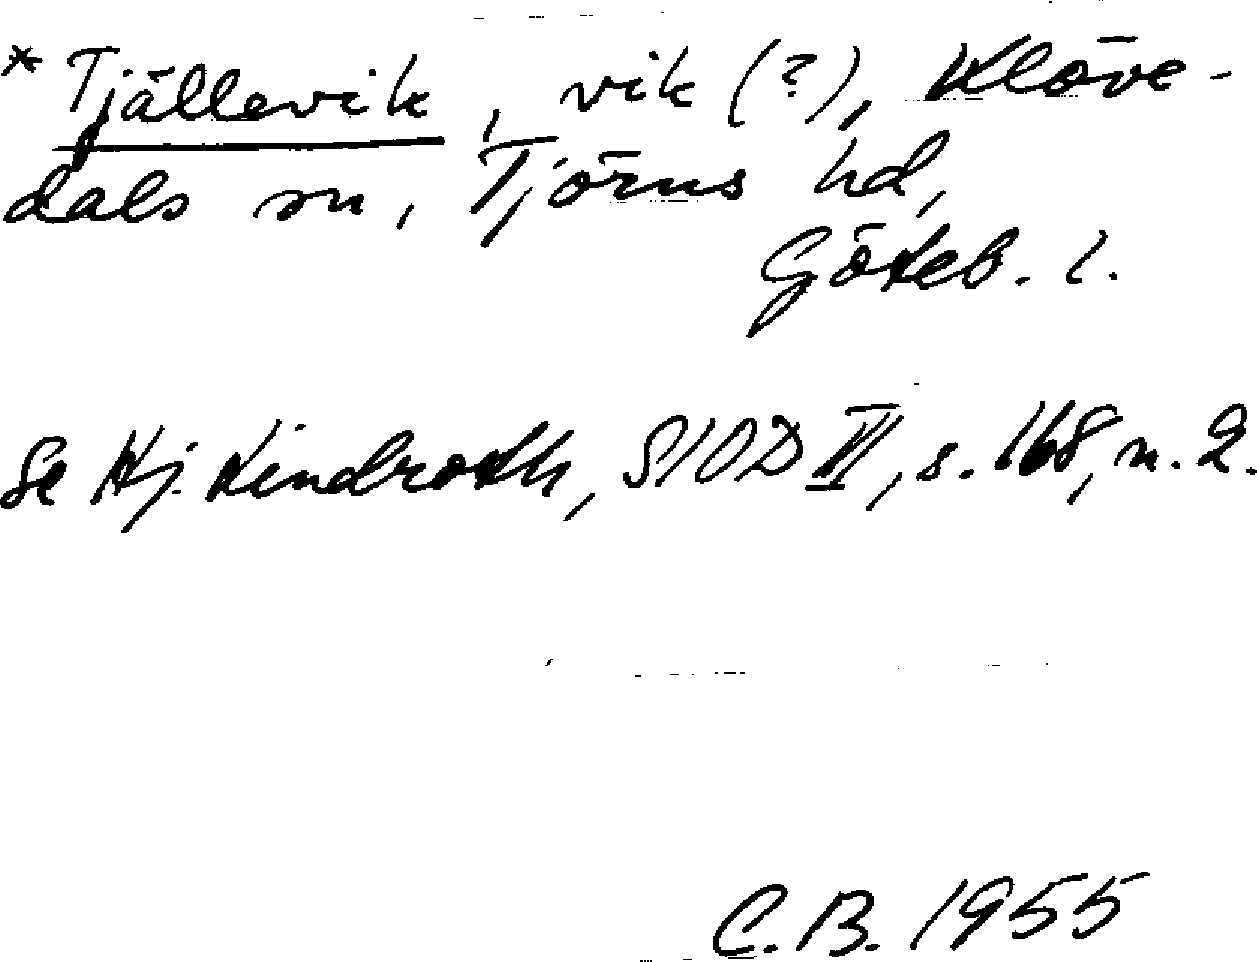 * Tjällevik, vik (?), Klöve-
dals sn, Tjörns hd,
Göteb. l.
Se Hj. Lindroth, SIOD III, s. 168, n. 2.
C.B. 1955